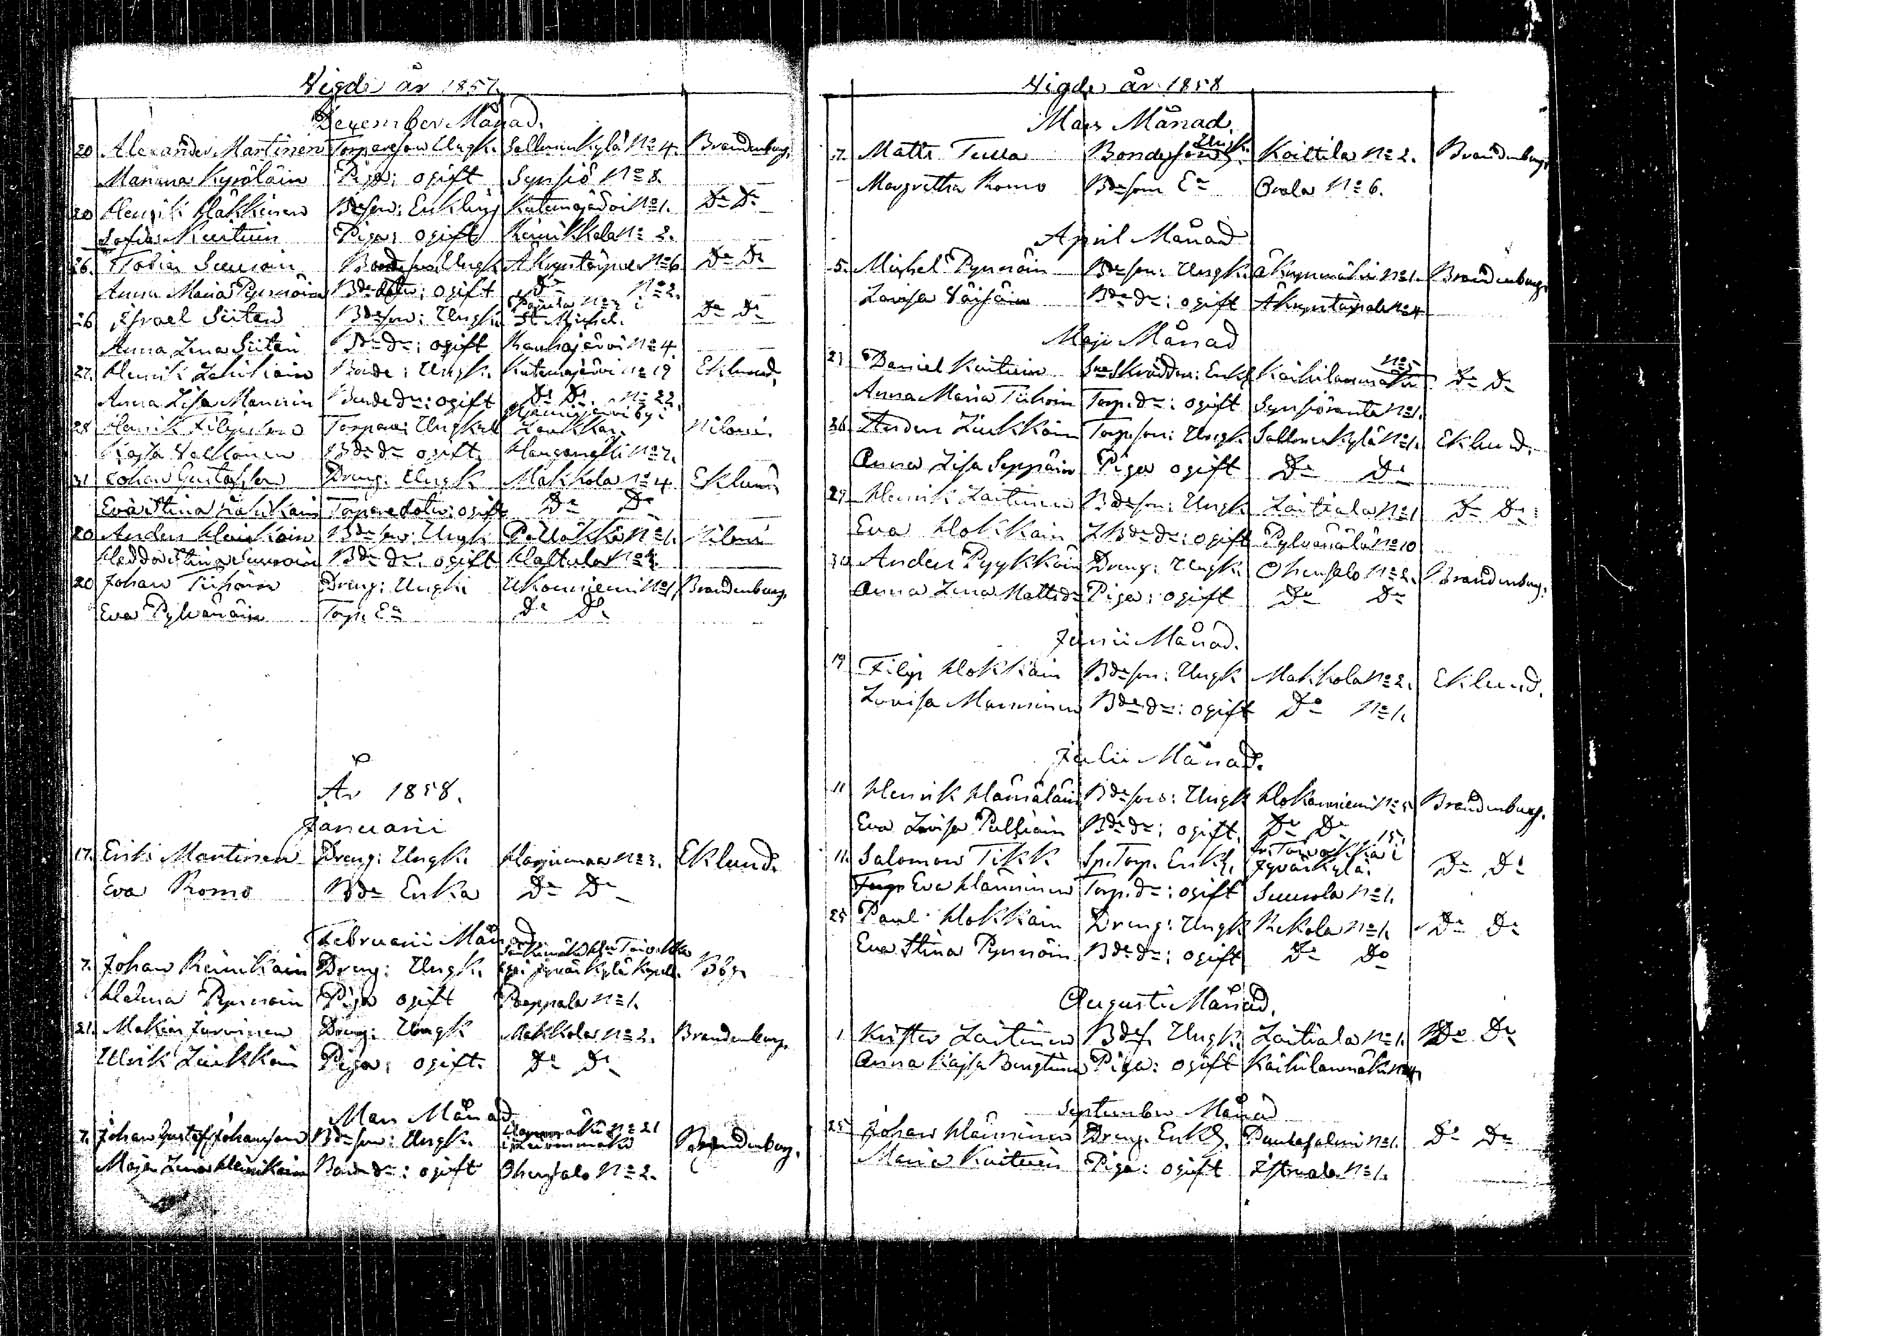 Vigde år 1857.
December Månad.
20 Alexander Martinen Torpareson Ungk. Sallmenkylä No 4. Brandenburg.
Mariana Kyröläin Piga: ogift Synsiö No 8.
20 Henrik Häkkinen Bdeson: Enkling Kutemajärvi No 1. Do Do
Sofia Kuituin Piga: ogift Heinikkala No 2.
26. Tobias Suuroin Bondeson Ungk. No 6 Do Do
Anna Maria Pynnöin Bde dotter: ogift Do No 2.
26 Israel Siiten Bdeson: Ungk. St Michel. Do Do
Anna Lena Siitari Bde Dr: ogift Kauhajärvi No 4.
27. Henrik Bonde: Ungk. Kutemajärvi No 19 Eklund.
Anna Lisa Mannin Bonde dr: ogift Do Do No 22.
28 Henrik Filpusson Torpare: Ungkarl Niloni.
Kajsa Valkonen Bde dr ogift No 2.
31 Johan Gustafsson Dreng: Ungk Makkola No 4. Eklund
Eva Stina Torparedotter: ogift Do Do
20 Anders Heinikain Bdeson: Ungk No 1. Niloni
Hedda Stina Suuroin Bde dr: ogift No 4.
20 Johan Tiihonen Dreng: Ungk. Ukonniemi No 1. Brandenburg
Eva Pylvänäin Torp. Ea Do Do
År 1858.
Januarii
17. Erik Martinen Dreng: Ungk. Harjumaa No 3. Eklund.
Eva Romo Bde Enka Do Do
Februarii Månad
7. Johan Reinikain Dreng: Ungk. Jyväskylä Kapell.
Helena Pynnöin Piga ogift Poeppala No 1.
21. Mathias Jurvinen Dreng: Ungk Makkola No 2. Brandenburg.
Ulrik Liukkoin Piga: ogift. Do Do
Mars Månad
7. Johan Gustaf Johansson Bdeson: Ungk. No 21 Brandenburg.
Maja Lena Heinikain Bonde dr: ogift Ohensalo No 2.
Vigde år 1858
Mars Månad.
7. Matts Tulla Bondeson Ungk. Koittila No 2. Brandenburg.
Margretha Romo Bdeson Ea No 6.
April Månad
5. Michel Pynnöin Bdeson: Ungk. No 1. Brandenburg.
Lovisa Väisäin Bde dr: ogift No 4
Maji Månad
21 Daniel Kuituin Enkl. Kaihilanmäki No 5 Do Do
Anna Maria Tiihoin Torp. dr: ogift Synsiöranta No 1.
26 Anders Liukkoin Torp.son: Ungk Sallmenkylä No 1. Eklund.
Anna Lisa Seppäin Piga ogift Do Do
29 Henrik Laitinen Bdeson: Ungk Laitiala No 1 Do Do
Eva Hokkain Bde dr: ogift Pylvänälä No 10
30 Anders Pyykköin Dreng: Ungk. Ohensalo No 2. Brandenburg.
Anna Lena Mattsdr Piga: ogift Do Do
Junii Månad.
19 Filip Hokkain Bdeson: Ungk Makkola No 2. Eklund.
Lovisa Manninen Bde dr: ogift Do No 1.
Julii Månad.
11 Henrik Hämäläin Bdeson: Ungk Hokanniemi No 5 Brandenburg.
Eva Lovisa Pulliain Bde dr: ogift. Do Do
11. Salomon Tikk Sp. Torp. Enkl. Jyväskylä. Do Do
Eva Hänninen Torp. dr: ogift Suurola No 1.
25 Paul Hokkain Dreng: Ungk Rekola No 1. Do Do
Eva Stina Pynnöin Bde dr: ogift Do Do
Augusti Månad.
1 Krister Laitinen Bdes. Ungk. Laitiala No 1. Do Do
Anna Kajsa Bengtsson Piga: ogift Kaihilanmäki No 4
September Månad
25 Johan Hänninen Dreng. Enkl. Puntasalmi No 1. Do Do
Maria Kuituin Piga: ogift Istruala No 1.